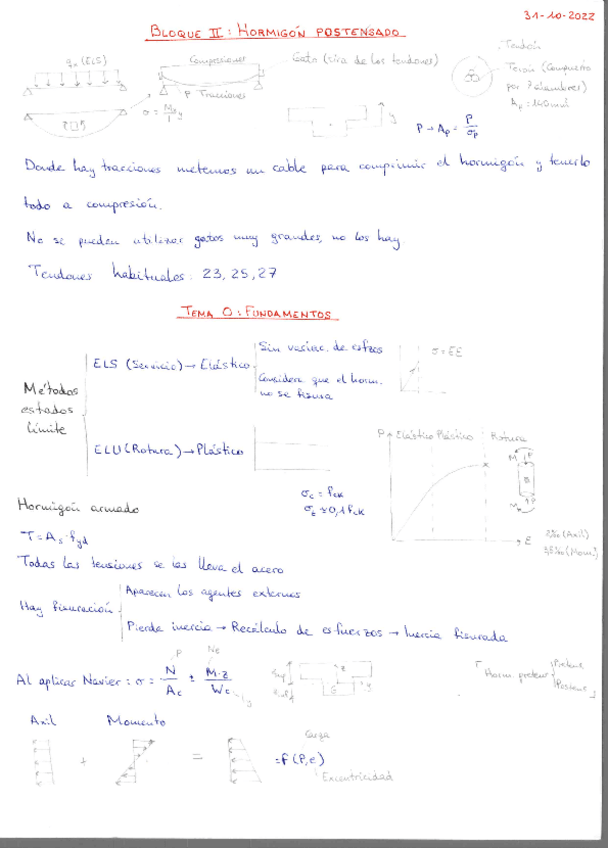 31-10-2022
BLOQUE II: HORMIGÓN POSTENSADO
q (ELS)
Compresiones
Gato (tira de los tendones)
Tendón
Torón (Compuesto
por 7 alambres)
P Tracciones
y
P → Ap = P/σp
Donde hay tracciones metemos un cable para comprimir el hormigón y tenerlo
todo a compresión.
No se pueden utilizar gatos muy grandes, no los hay
Tendones habituales: 23, 25, 27
TEMA 0: FUNDAMENTOS
Métodos
estados
límite
ELS (Servicio) → Elástico
Sin variac. de esfzos
Considera que el horm.
no se fisura
σ = EE
ELU (Rotura) → Plástico
P
Elástico Plástico Rotura
M
P
B
E
σc = fck
σt ≈ 0,1 fck
2‰ (Axil)
3,5‰ (Mom.)
Hormigón armado
T = As · fyd
Todas las tensiones se las lleva el acero
Hay fisuración
Aparecen los agentes externos
Pierde inercia → Recálculo de esfuerzos → Inercia fisurada
Al aplicar Navier: σ = N/Ac ± M·z/Wc
P
z
G
y
Horm. preten
Pretens
Postens
Axil
Momento
+
=
= f (P, e)
Carga
Excentricidad